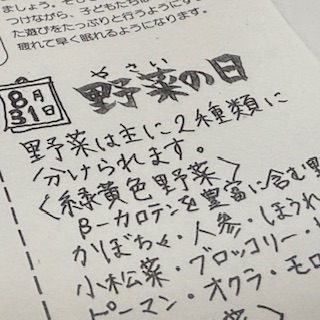 ましょう。そし
つけながら、子どもたちは
た遊びをたっぷりと行うようにす
疲れて早く眠れるようになります。
8月
31日
やさい
野菜の日
野菜は主に2種類に
分けられます。
〈緑黄色野菜〉
β-カロテンを豊富に含む野
かぼちゃ・人参・ほうれ
小松菜・ブロッコリー・
ピーマン・オクラ・モロ
菜〉